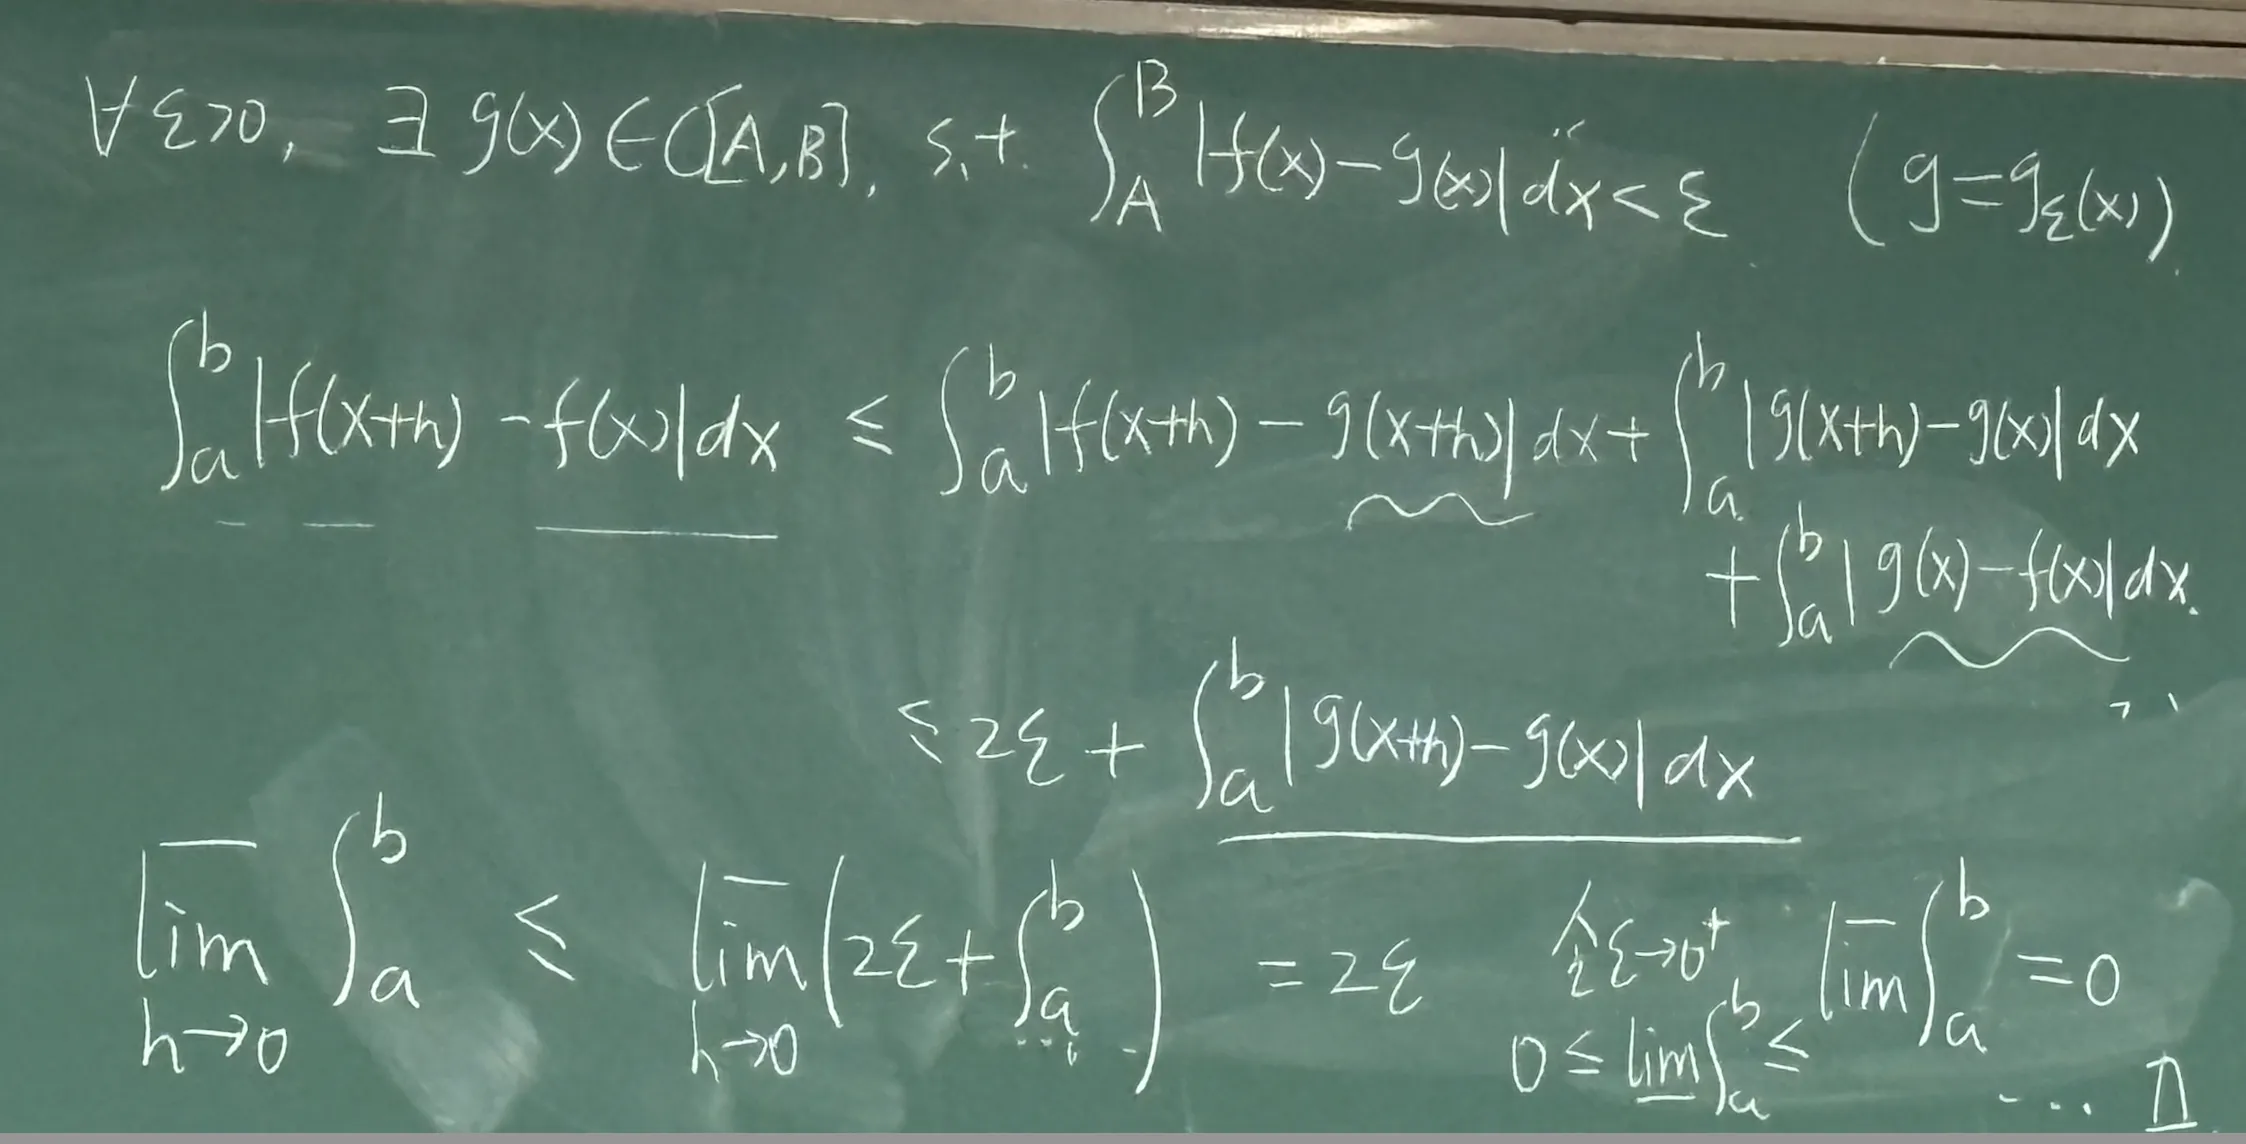 ∀ε>0, ∃ g(x)∈C[A,B], s.t. ∫_A^B |f(x)-g(x)|dx<ε (g=g_ε(x)).
∫_a^b |f(x+h)-f(x)|dx ≤ ∫_a^b |f(x+h)-g(x+h)|dx + ∫_a^b |g(x+h)-g(x)|dx
+ ∫_a^b |g(x)-f(x)|dx.
≤ 2ε + ∫_a^b |g(x+h)-g(x)|dx
\overline{lim}_{h→0} ∫_a^b ≤ \overline{lim}_{h→0} (2ε + ∫_a^b ...) = 2ε 令ε→0⁺ \overline{lim} ∫_a^b = 0
0 ≤ \underline{lim} ∫_a^b ≤ ... □